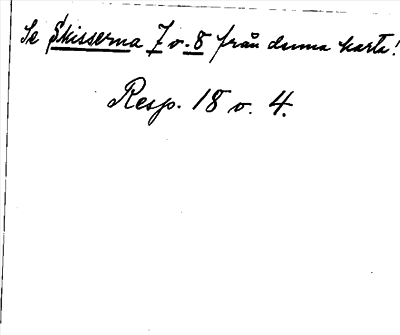 Se Skisserna 7 o. 8 från denna karta!
Resp. 18 o. 4.